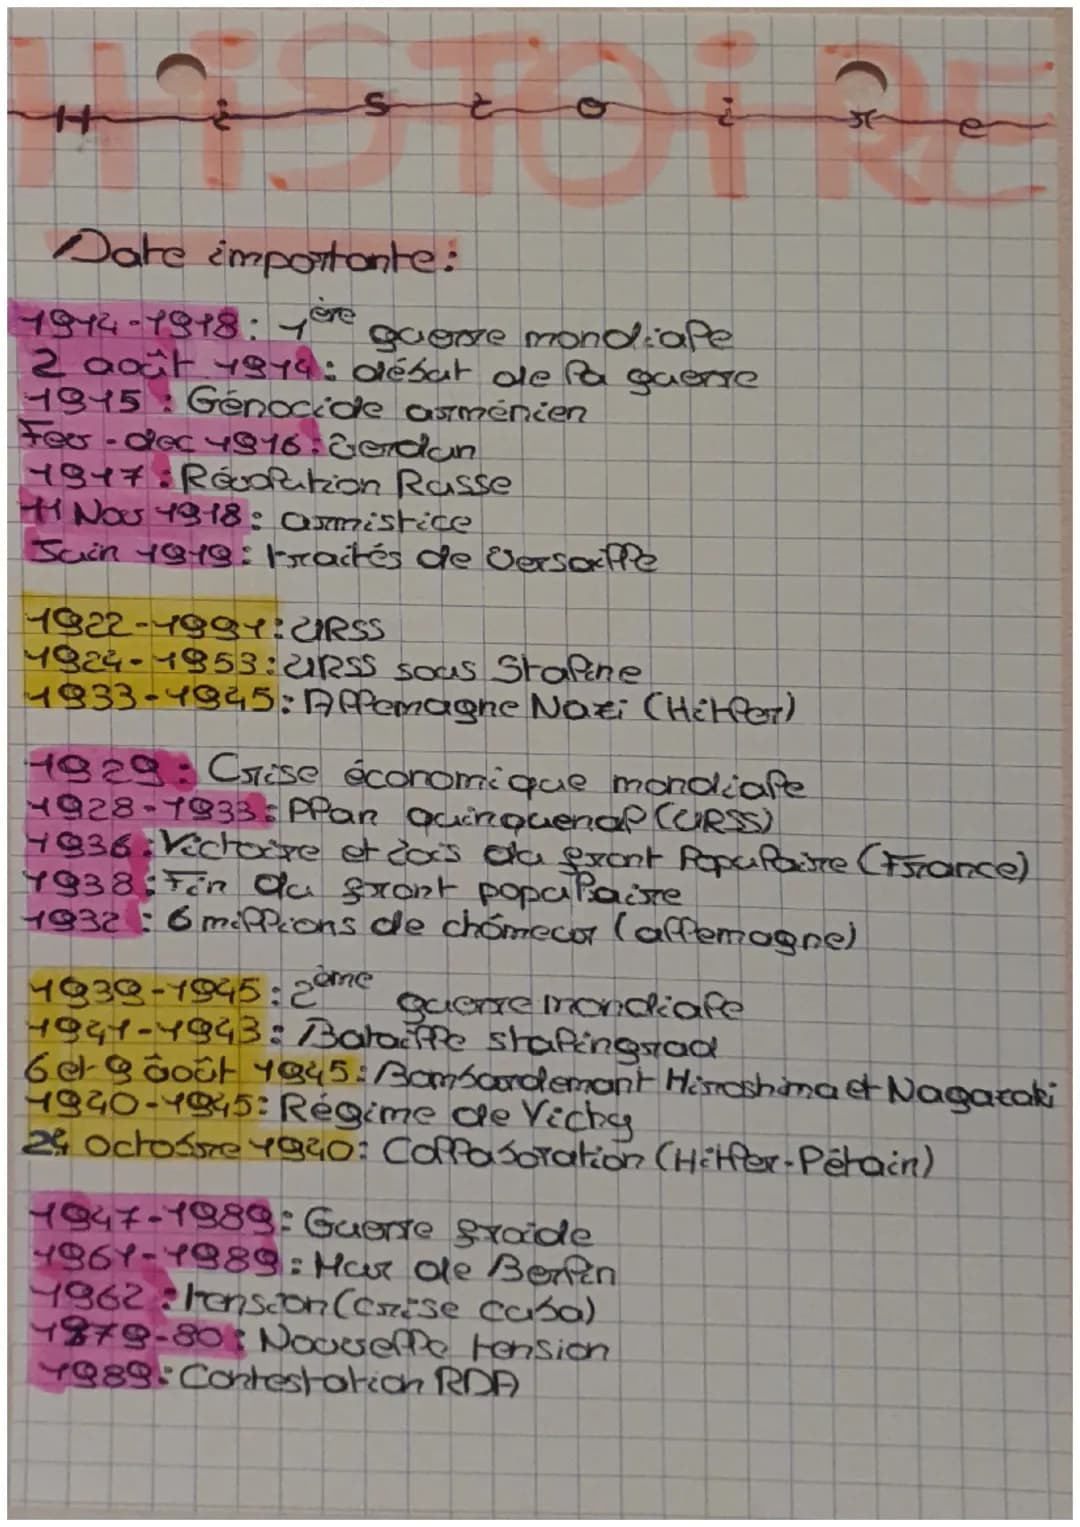 HiSTOiRE
Histoire
Date importante:
1914-1918: 1ère guerre mondiale
2 août 1914: début de la guerre
1915: Génocide arménien
Fev-dec 1916: Verdun
1917: Révolution Russe
11 Nov 1918: armistice
Juin 1919: traités de Versaille
1922-1991: URSS
1924-1953: URSS sous Staline
1933-1945: Allemagne Nazi (Hitler)
1929: Crise économique mondiale
1928-1933: Plan quinquenal (URSS)
1936: Victoire et lois du front Populaire (France)
1938: Fin du front populaire
1932: 6 millions de chômeur (allemagne)
1939-1945: 2ème guerre mondiale
1941-1943: Bataille stalingrad
6 et 9 âoût 1945: Bombardemant Hiroshima et Nagazaki
1940-1945: Régime de Vichy
24 octobre 1940: Collaboration (Hitler-Pétain)
1947-1989: Guerre froide
1961-1989: Mur de Berlin
1962: tension (crise cuba)
1979-80: Nouvelle tension
1989: Contestation RDA